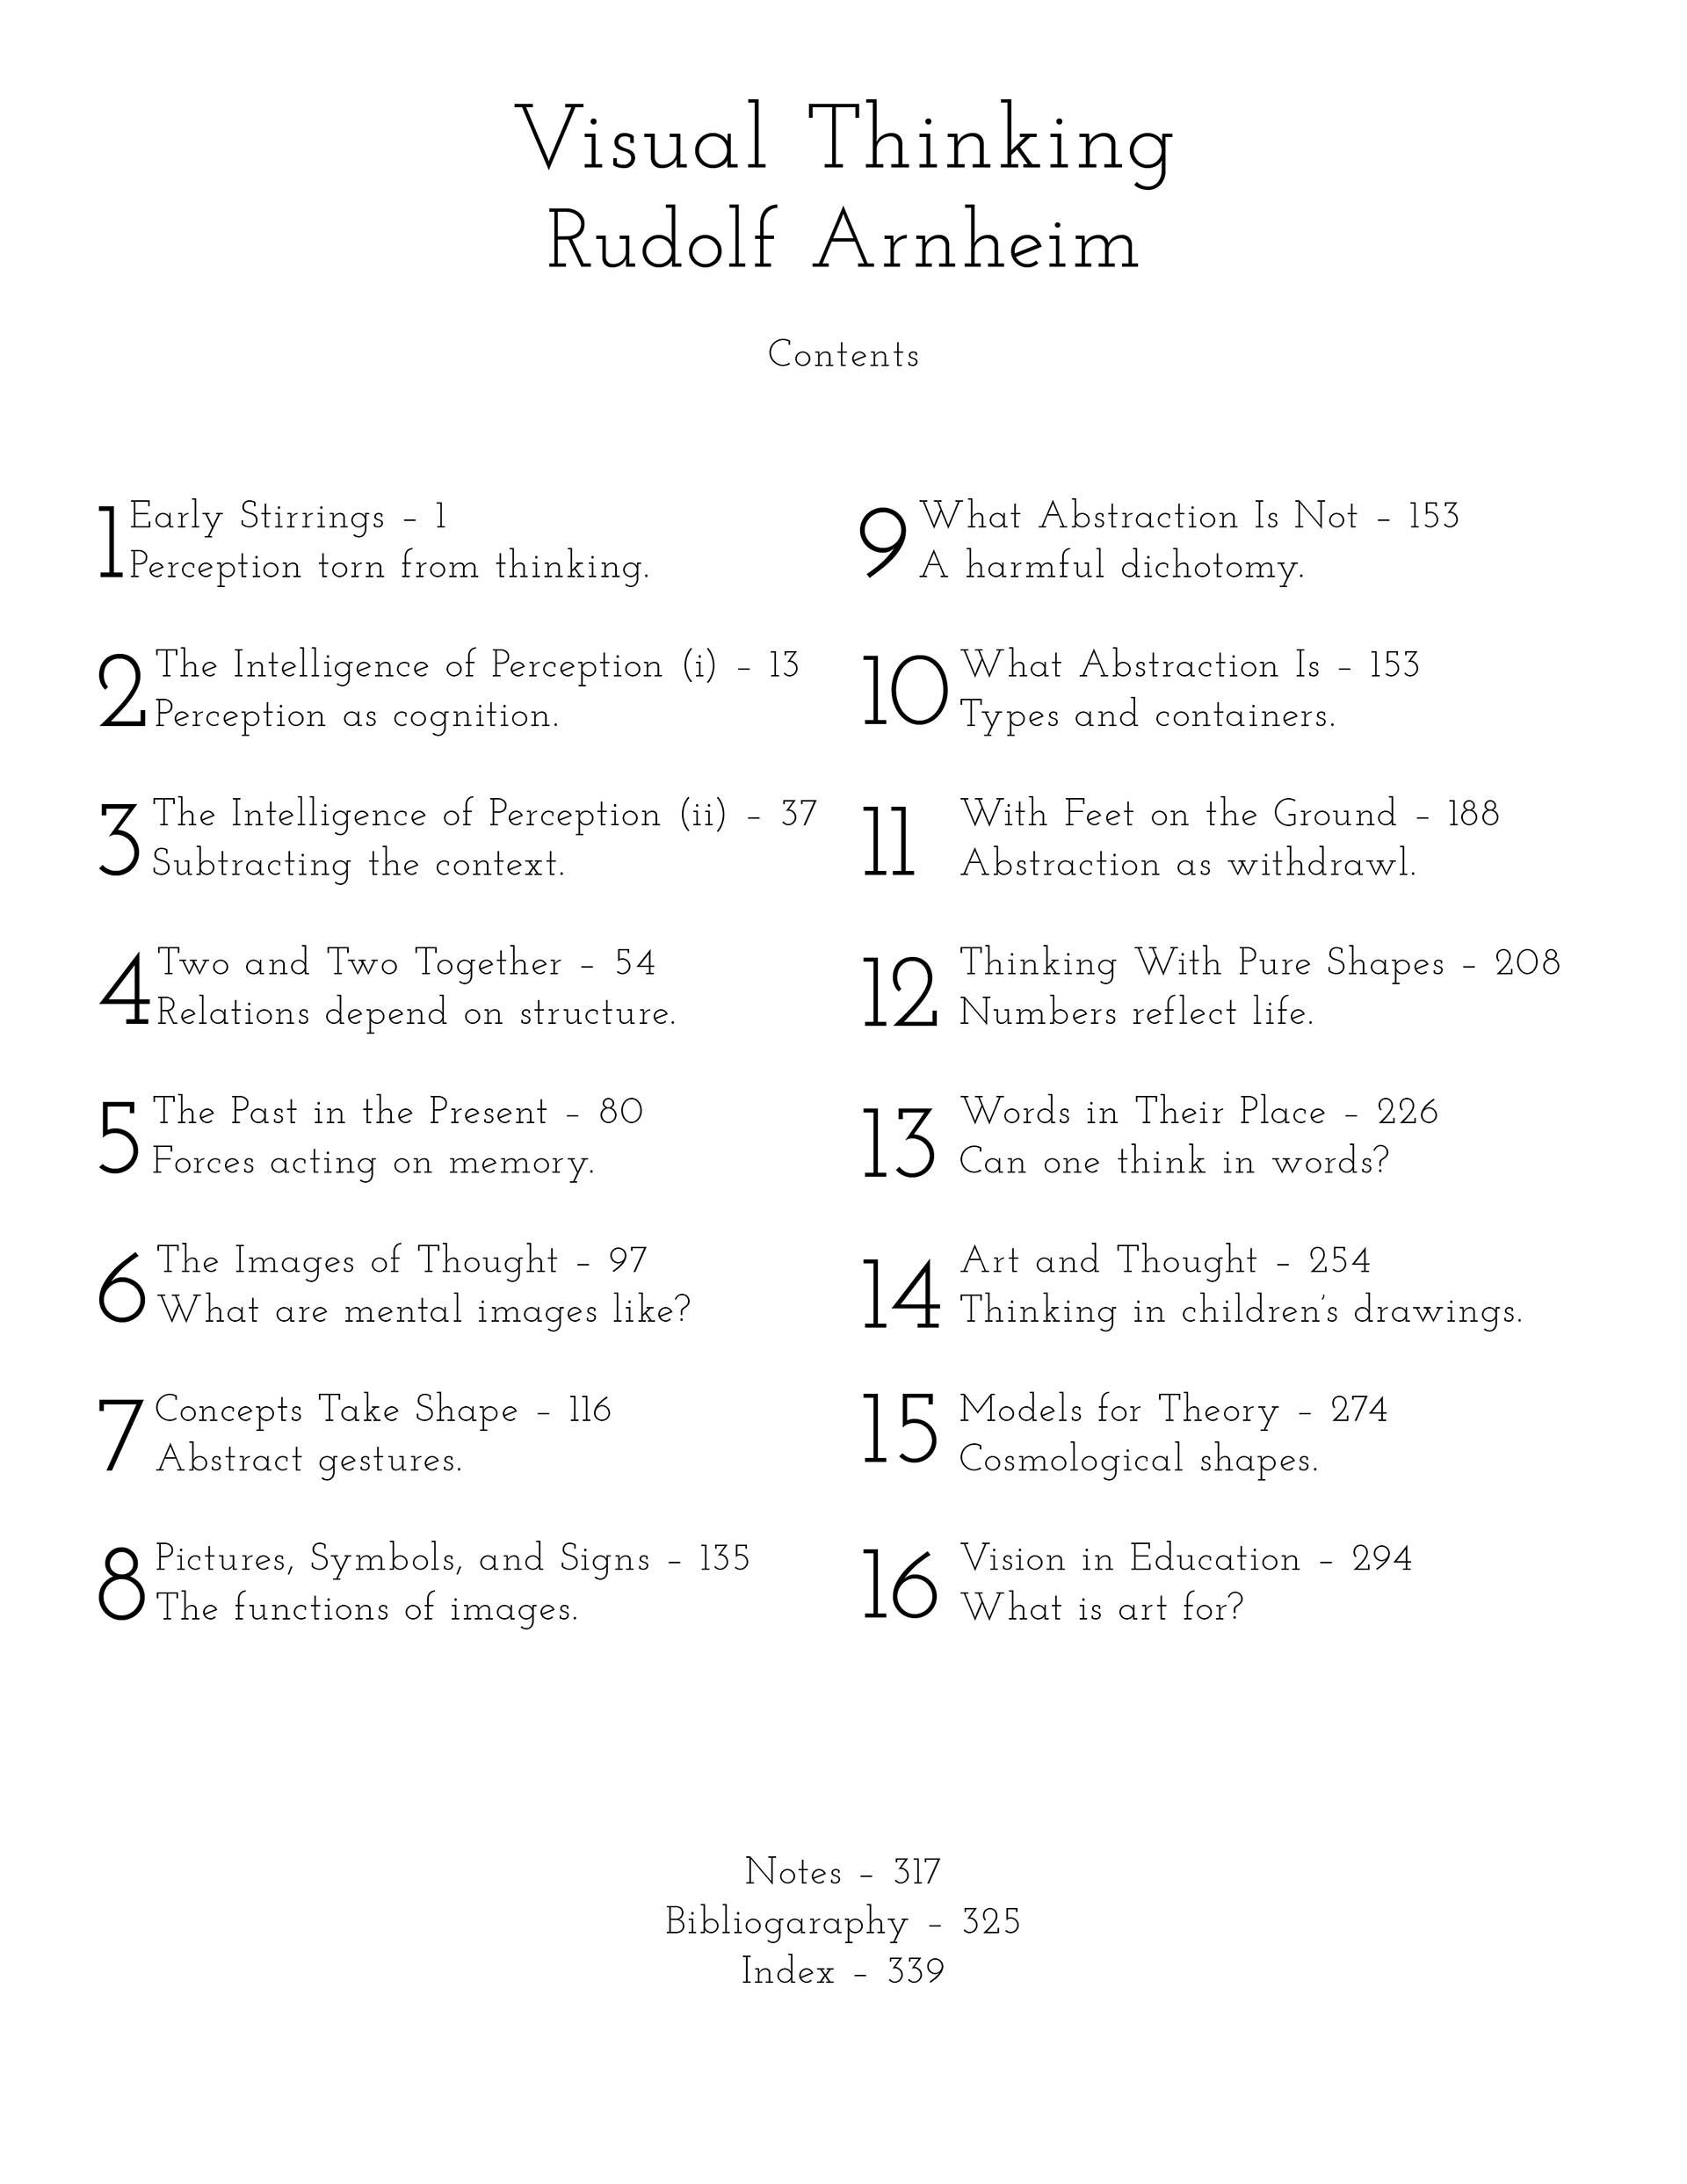 Visual Thinking
Rudolf Arnheim
Contents
1 Early Stirrings – 1
Perception torn from thinking.
2 The Intelligence of Perception (i) – 13
Perception as cognition.
3 The Intelligence of Perception (ii) – 37
Subtracting the context.
4 Two and Two Together – 54
Relations depend on structure.
5 The Past in the Present – 80
Forces acting on memory.
6 The Images of Thought – 97
What are mental images like?
7 Concepts Take Shape – 116
Abstract gestures.
8 Pictures, Symbols, and Signs – 135
The functions of images.
9 What Abstraction Is Not – 153
A harmful dichotomy.
10 What Abstraction Is – 153
Types and containers.
11 With Feet on the Ground – 188
Abstraction as withdrawl.
12 Thinking With Pure Shapes – 208
Numbers reflect life.
13 Words in Their Place – 226
Can one think in words?
14 Art and Thought – 254
Thinking in children's drawings.
15 Models for Theory – 274
Cosmological shapes.
16 Vision in Education – 294
What is art for?
Notes – 317
Bibliogaraphy – 325
Index – 339